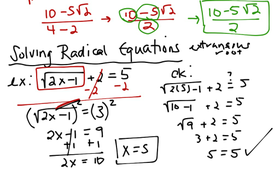 10-5√2 / 4-2 → 10-5√2 / 2 → 10-5√2 / 2
Solving Radical Equations extraneous root
ex: √2x-1 + 2 = 5
-2 -2
(√2x-1)² = (3)²
2x-1 = 9
+1 +1
2x = 10
x = 5
ck:
√2(5)-1 + 2 ?= 5
√10-1 + 2 = 5
√9 + 2 = 5
3+2 = 5
5 = 5 ✓